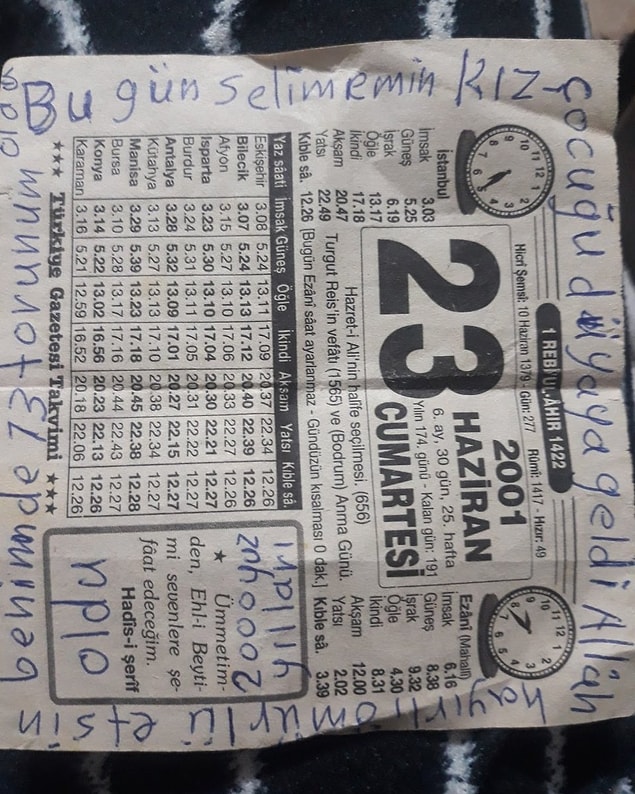 Bu gün selimemin KIZ
çocuğu dünyaya geldi Allah
hayırlı ömürlü etsin
benimde 13 torunum oldu
1 REBİ'UL-ÂHIR 1422
Hicrî Şemsî: 10 Haziran 1379 - Gün: 277 Rûmî: 1417 - Hızır: 49
2001
23 HAZİRAN
6. ay, 30 gün, 25. hafta
Yılın 174. günü - Kalan gün: 191
CUMARTESİ
İstanbul
İmsak 3.03
Güneş 5.25
İşrak 6.19
Öğle 13.17
İkindi 17.18
Akşam 20.47
Yatsı 22.49
Kıble sâ. 12.26
Ezânî (Mahallî)
İmsak 6.16
Güneş 8.38
İşrak 9.32
Öğle 4.30
İkindi 8.31
Akşam 12.00
Yatsı 2.02
Kıble sâ. 3.39
Hazret-i Ali'nin halîfe seçilmesi. (656)
Turgut Reis'in vefâtı (1565) ve (Bodrum) Anma Günü.
[Bugün Ezânî sâat ayarlanmaz - Gündüzün kısalması 0 dak.]
Yaz sâati İmsak Güneş Öğle İkindi Akşam Yatsı Kıble sâ.
Eskişehir 3.08 5.24 13.11 17.09 20.37 22.34 12.26
Bilecik 3.07 5.24 13.13 17.12 20.40 22.39 12.26
Afyon 3.15 5.27 13.10 17.06 20.33 22.27 12.26
Isparta 3.23 5.30 13.10 17.04 20.30 22.21 12.27
Burdur 3.24 5.31 13.11 17.05 20.31 22.22 12.27
Antalya 3.28 5.32 13.09 17.01 20.27 22.15 12.27
Kütahya 3.13 5.27 13.13 17.10 20.38 22.34 12.27
Manisa 3.29 5.39 13.23 17.18 20.45 22.38 12.28
Bursa 3.10 5.28 13.17 17.16 20.44 22.43 12.27
Konya 3.14 5.22 13.02 16.56 20.23 22.13 12.26
Karaman 3.16 5.21 12.59 16.52 20.18 22.06 12.26
★★★ Türkiye Gazetesi Takvimi ★★★
★ Ümmetim-
den, Ehl-i Beyti-
mi sevenlere şe-
fâat edeceğim.
Hadîs-i şerîf
oldu